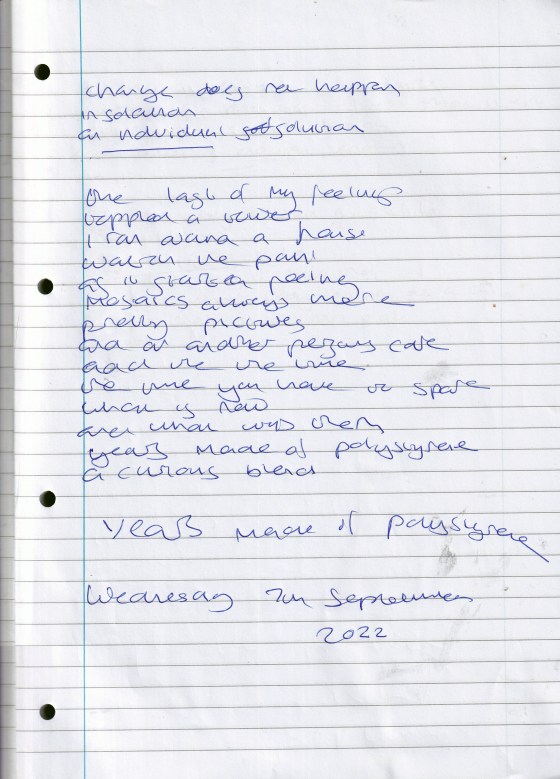 change does not happen
in isolation
an individual solution
One last of my feelings
toppled a tower
I ran around a house
watch the paint
as it started peeling
mosaics always make
pretty pictures
and on another persons cafe
and the the time
the time you have to spare
what is now
and what was then
years made of polystyrene
a curious blend
years made of polystyrene
Wednesday 7th September
2022